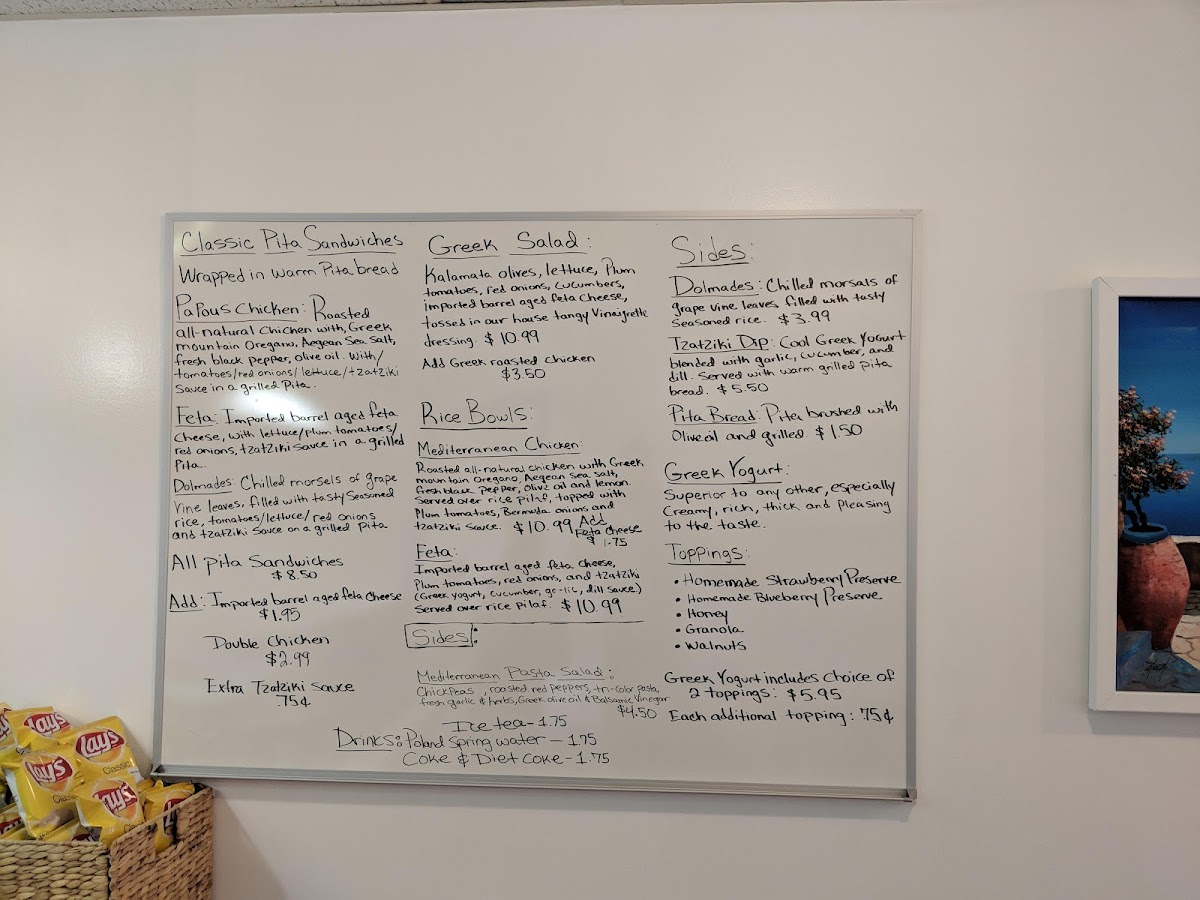 Classic Pita Sandwiches
Wrapped in warm Pita bread
Papous Chicken: Roasted
all-natural chicken with, Greek
mountain Oregano, Aegean Sea Salt,
fresh black pepper, olive oil. With/
tomatoes/red onions/lettuce/tzatziki
Sauce in a grilled Pita.
Feta: Imported barrel aged feta
Cheese, with lettuce/plum tomatoes/
red onions, tzatziki sauce in a grilled
Pita.
Dolmades: Chilled morsels of grape
Vine leaves, filled with tasty Seasoned
rice, tomatoes/lettuce/red onions
and tzatziki Sauce on a grilled Pita
All pita Sandwiches
$8.50
Add: Imported barrel aged feta Cheese
$1.95
Double Chicken
$2.99
Extra Tzatziki sauce
.75¢
Greek Salad:
Kalamata olives, lettuce, Plum
tomatoes, red onions, cucumbers,
imported barrel aged feta cheese,
tossed in our house tangy Vinaigrette
dressing. $10.99
Add Greek roasted chicken
$3.50
Rice Bowls:
Mediterranean Chicken:
Roasted all-natural chicken with Greek
mountain Oregano, Aegean Sea Salt,
fresh black pepper, Olive oil and lemon.
Served over rice pilaf, topped with
Plum tomatoes, Bermuda onions and
tzatziki sauce. $10.99 Add
Feta Cheese
$1.75
Feta:
Imported barrel aged feta cheese,
Plum tomatoes, red onions, and tzatziki
(Greek yogurt, cucumber, garlic, dill sauce)
Served over rice pilaf. $10.99
Sides:
Mediterranean Pasta Salad:
Chickpeas, roasted red peppers, tri-color pasta,
fresh garlic & herbs, Greek olive oil & Balsamic Vinegar
$4.50
Ice tea - 1.75
Drinks: Poland Spring water - 1.75
Coke & Diet Coke - 1.75
Sides:
Dolmades: Chilled morsals of
grape vine leaves filled with tasty
Seasoned rice. $3.99
Tzatziki Dip: Cool Greek Yogurt
blended with garlic, cucumber, and
dill. Served with warm grilled pita
bread. $5.50
Pita Bread: Pita brushed with
Olive oil and grilled. $1.50
Greek Yogurt:
Superior to any other, especially
Creamy, rich, thick and pleasing
to the taste.
Toppings:
• Homemade Strawberry Preserve
• Homemade Blueberry Preserve
• Honey
• Granola
• Walnuts
Greek Yogurt includes Choice of
2 toppings: $5.95
Each additional topping: .75¢
Lay's
Classic
Lay's
Classic
Lay's